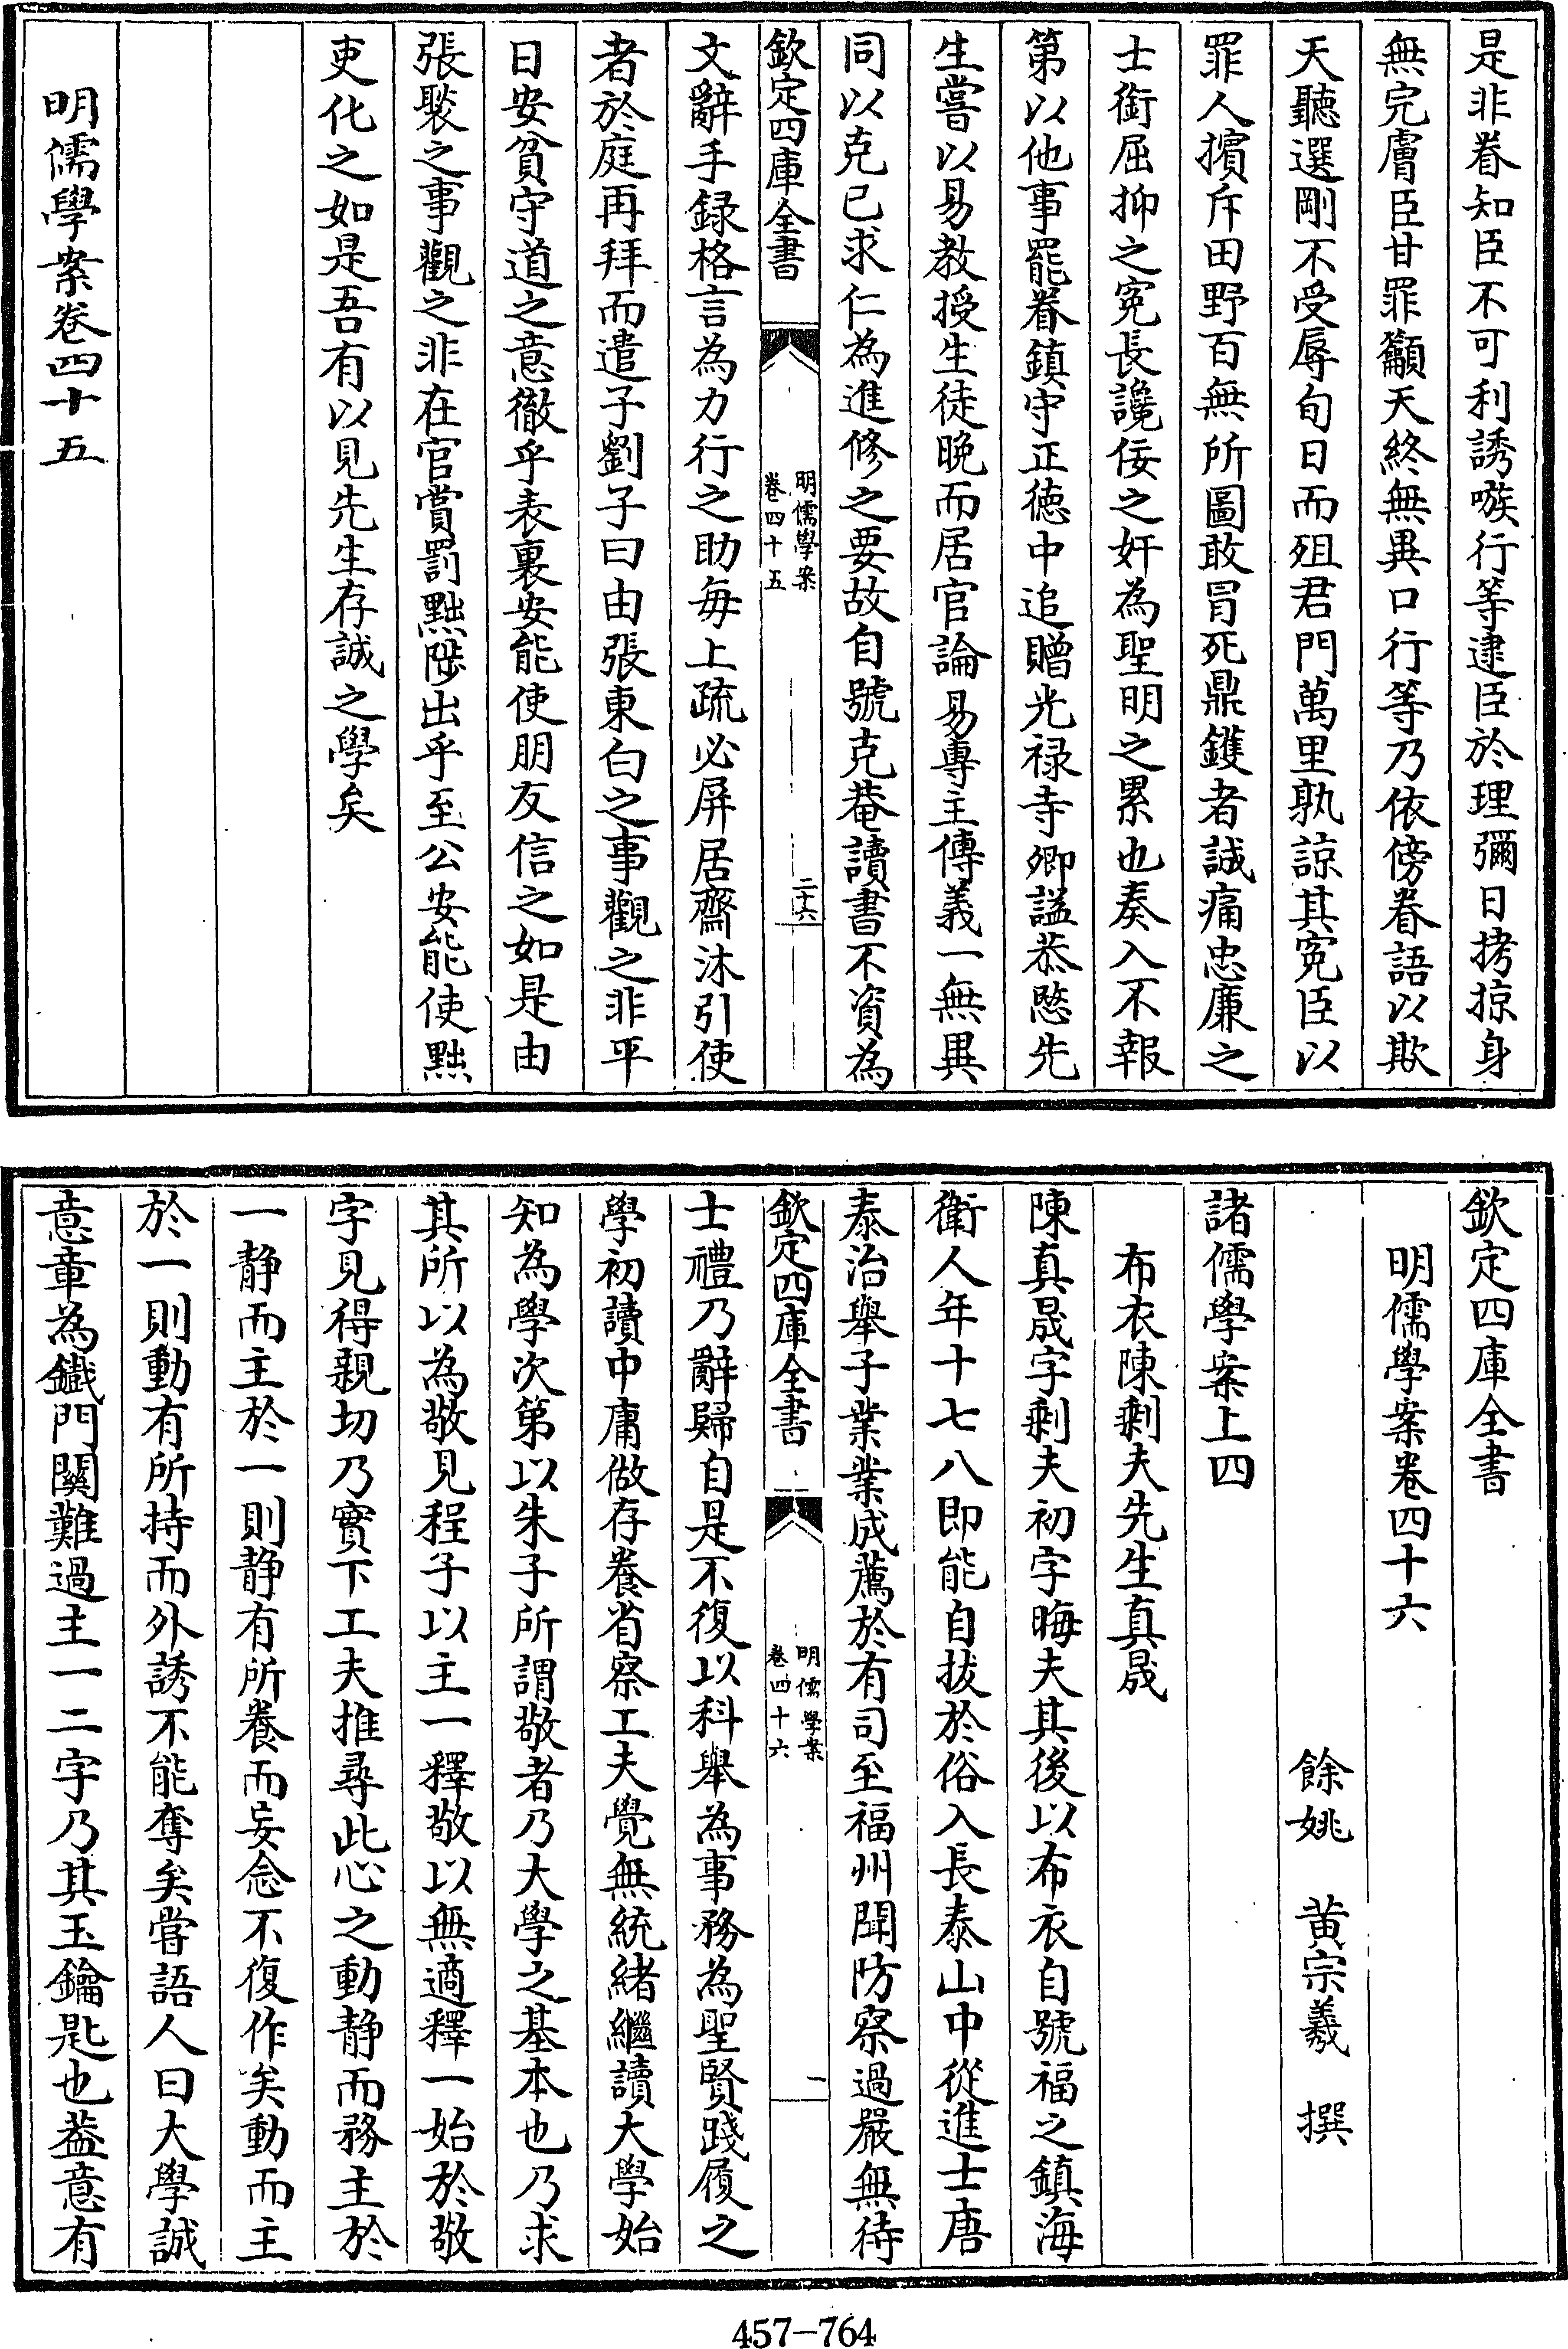 是非眷知臣不可利誘嗾行等逮臣於理彌日拷掠身
無完膚臣甘罪籲天終無異口行等乃依傍眷語以欺
天聽選剛不受辱旬日而殂君門萬里孰諒其寃臣以
罪人擯斥田野百無所圖敢冒死鼎鑊者誠痛忠廉之
士銜屈抑之寃長讒佞之奸為聖明之累也奏入不報
第以他事罷眷鎮守正徳中追贈光禄寺卿謚恭愍先
生嘗以易教授生徒晚而居官論易專主傳義一無異
同以克已求仁為進修之要故自號克菴讀書不資為
欽定四庫全書
明儒學案
卷四十五
二十六
文辭手録格言為力行之助毎上疏必屏居齋沐引使
者於庭再拜而遣子劉子曰由張東白之事觀之非平
日安貧守道之意徹乎表裏安能使朋友信之如是由
張褧之事觀之非在官賞罰黜陟出乎至公安能使黜
吏化之如是吾有以見先生存誠之學矣
明儒學案卷四十五
欽定四庫全書
明儒學案卷四十六
餘姚 黄宗羲 撰
諸儒學案上四
布衣陳剩夫先生真晟
陳真晟字剩夫初字晦夫其後以布衣自號福之鎮海
衛人年十七八即能自拔於俗入長泰山中從進士唐
泰治舉子業業成薦於有司至福州聞防察過嚴無待
欽定四庫全書
明儒學案
卷四十六
一
士禮乃辭歸自是不復以科舉為事務為聖賢踐履之
學初讀中庸做存養省察工夫覺無統緒繼讀大學始
知為學次第以朱子所謂敬者乃大學之基本也乃求
其所以為敬見程子以主一釋敬以無適釋一始於敬
字見得親切乃實下工夫推尋此心之動静而務主於
一静而主於一則静有所養而妄念不復作矣動而主
於一則動有所持而外誘不能奪矣嘗語人曰大學誠
意章為鐵門關難過主一二字乃其玉鑰匙也葢意有
457-764